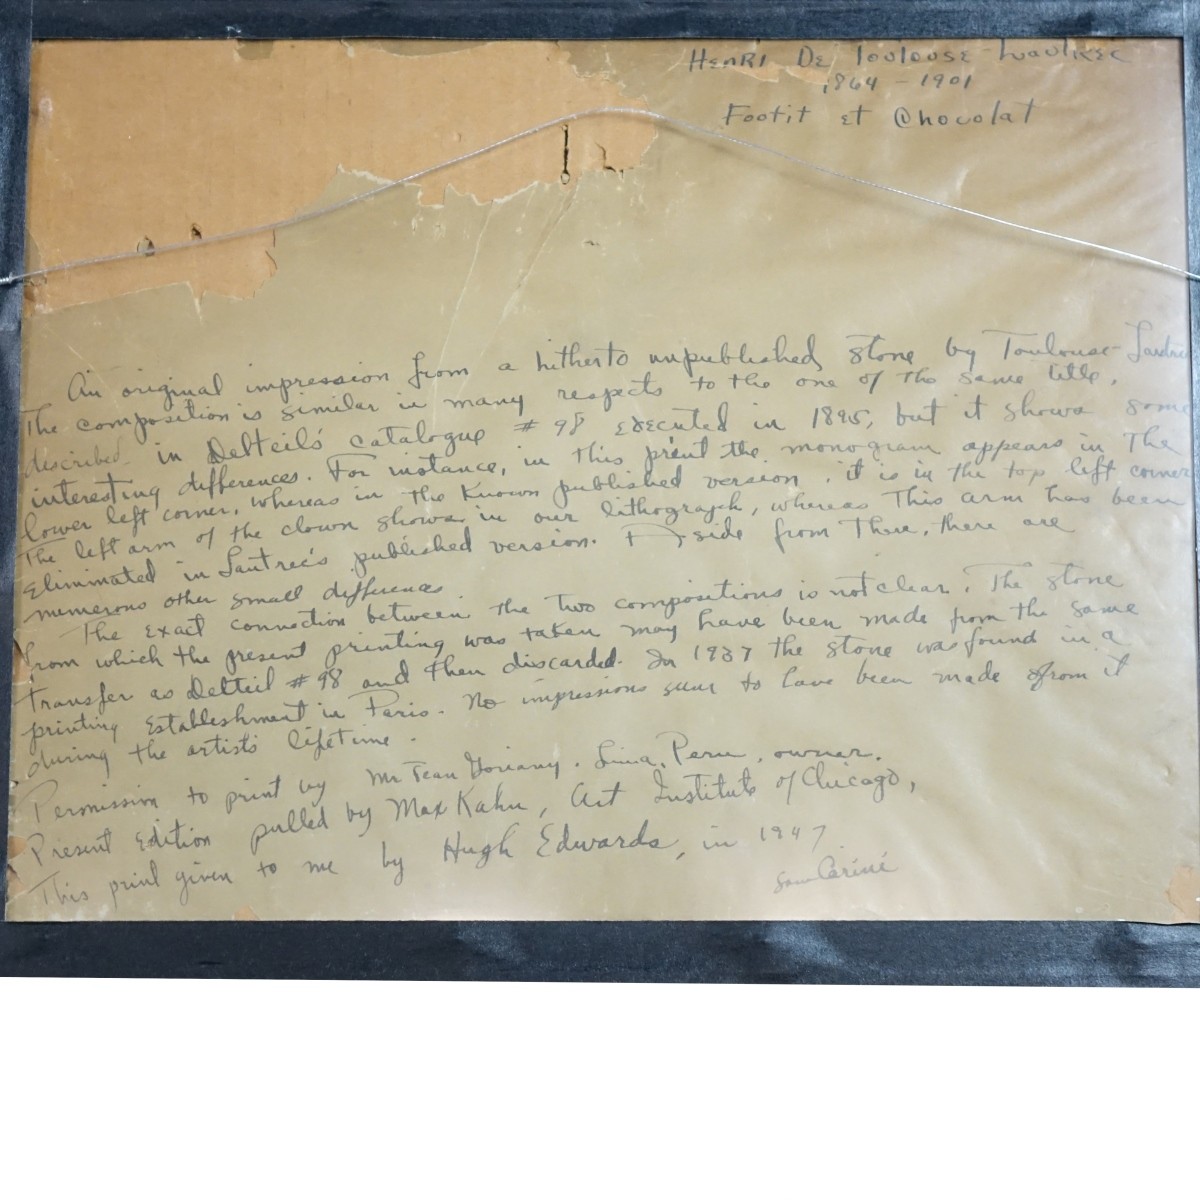 HENRI DE Toulouse-Lautrec
1864 - 1901
Footit et Chocolat
An original impression from a hitherto unpublished stone by Toulouse-Lautrec
The composition is similar in many respects to the one of the same title,
described in Delteil's catalogue # 98 executed in 1895, but it shows some
interesting differences. For instance, in this print the monogram appears in The
lower left corner, whereas in the known published version, it is in the top left corner
The left arm of the clown shows in our lithograph, whereas This arm has been
eliminated in Lautrec's published version. Aside from These, there are
numerous other small differences
The exact connection between the two compositions is not clear. The stone
from which the present printing was taken may have been made from the same
transfer as Delteil # 98 and then discarded. In 1937 the stone was found in a
printing establishment in Paris. No impressions seem to have been made from it
during the artist's lifetime.
Permission to print by Mr Jean Goriany. Lima, Peru, owner.
Present edition pulled by Max Kahn, Art Institute of Chicago,
This print given to me by Hugh Edwards, in 1947